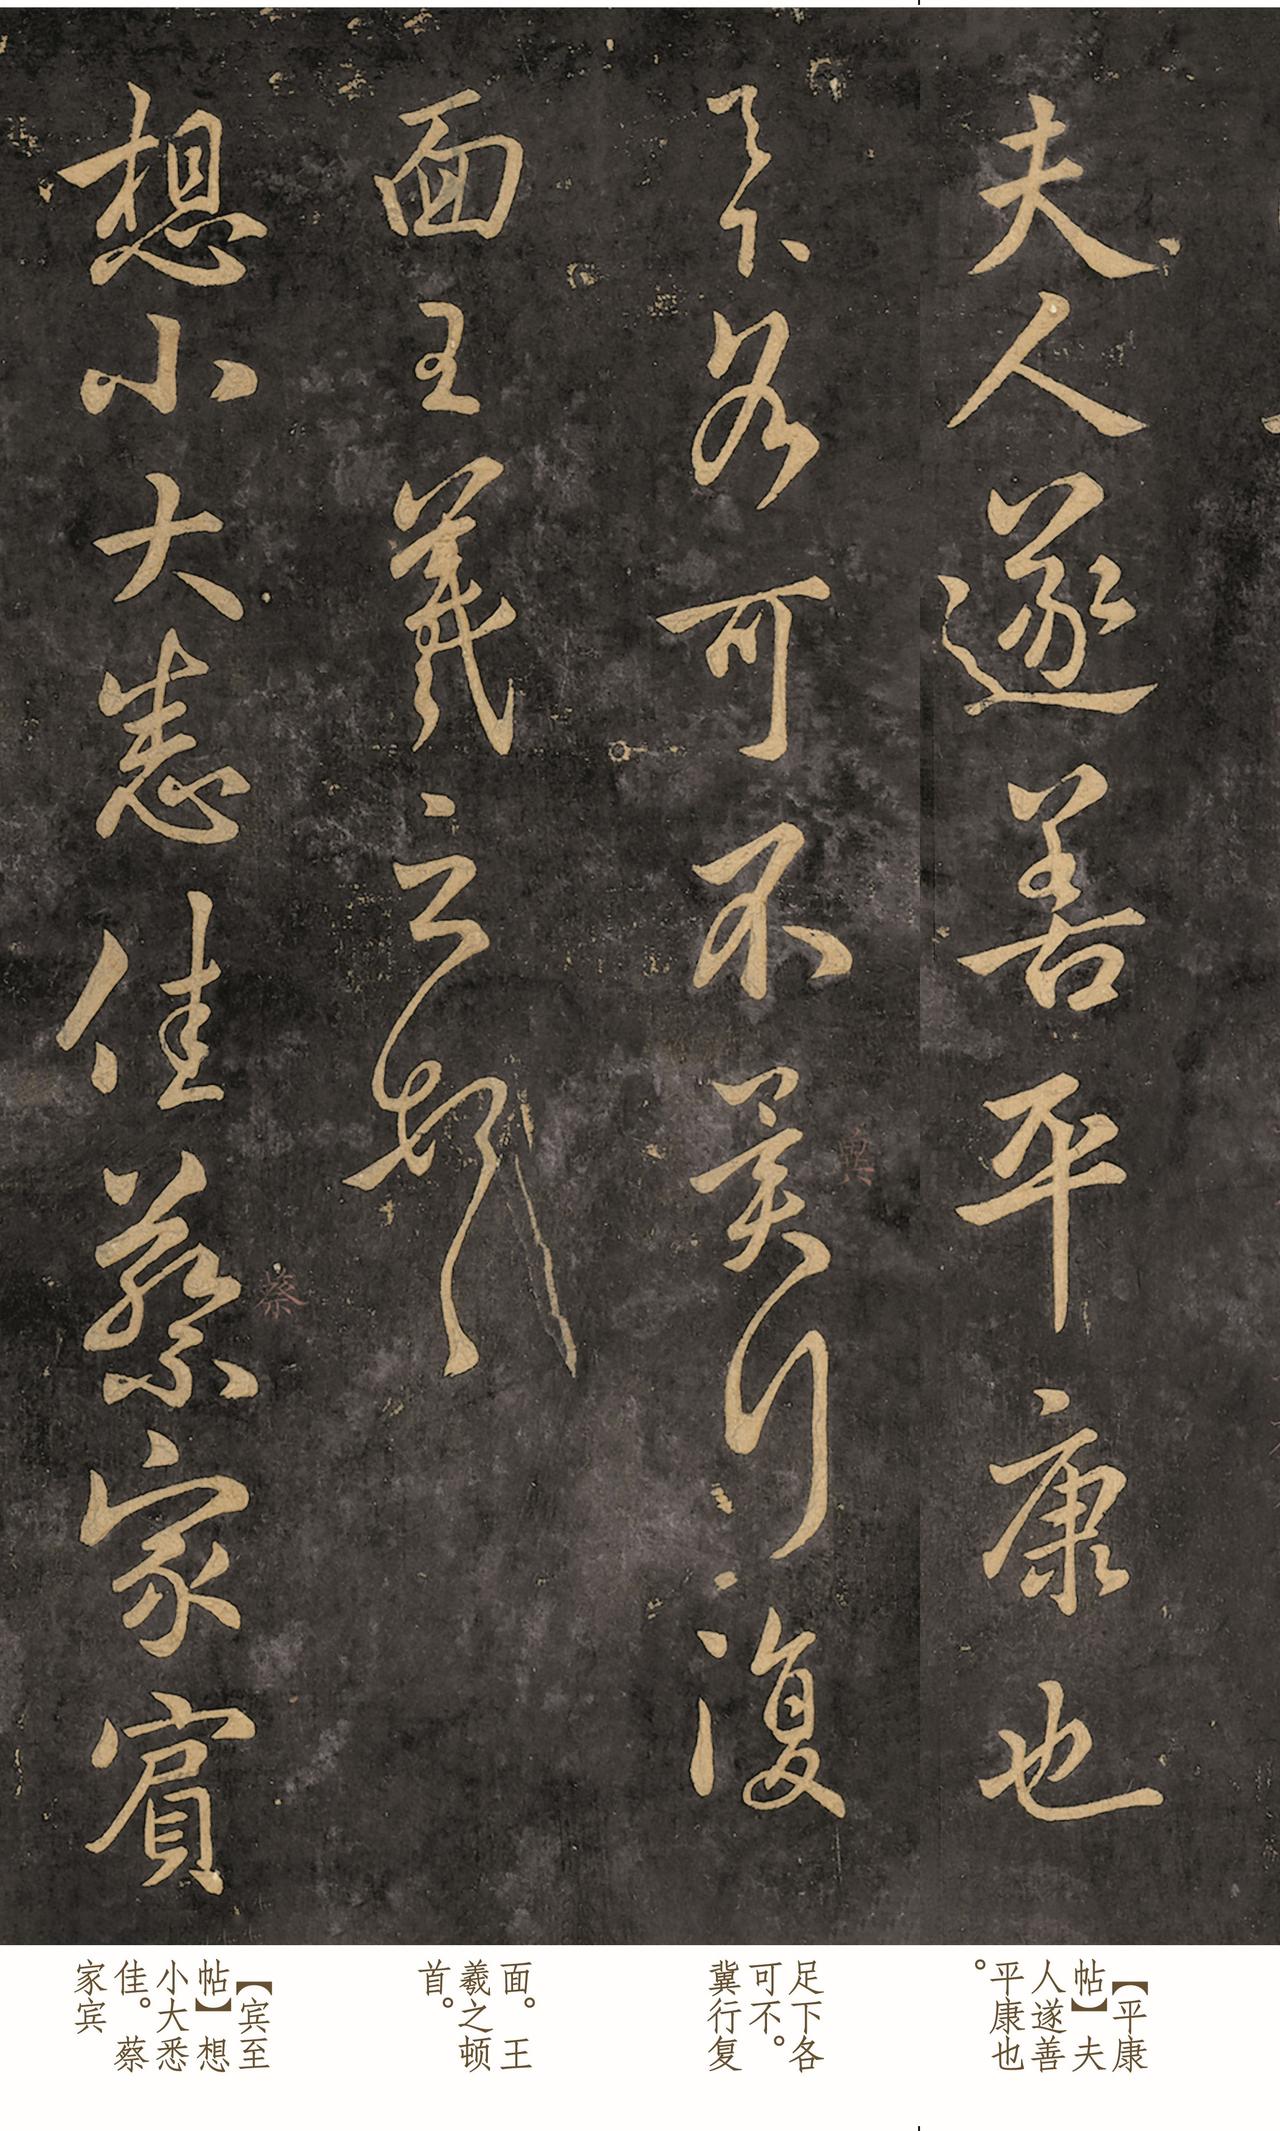 夫人遂善平康也
足下各可不冀行復
面王羲之頓首
想小大悉佳蔡家賓
冀
蔡
【平康
帖】夫
人遂善
平康也
。
足下各
可不。
冀行复
面。王
羲之顿
首。
【宾至
帖】想
小大悉
佳。蔡
家宾